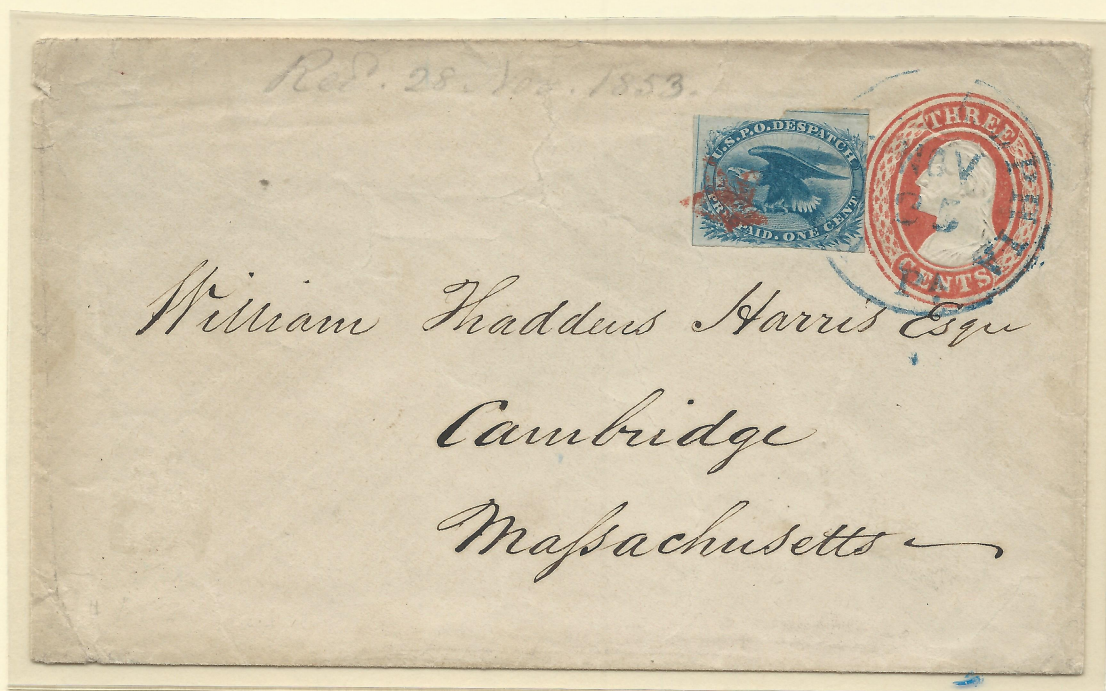 Recd. 28. Nov. 1853.
U.S.P.O. DESPATCH
PREPAID. ONE CENT
THREE
CENTS
PHILA
NOV
Pa.
William Thaddeus Harris Esqre
Cambridge
Maſsachusetts